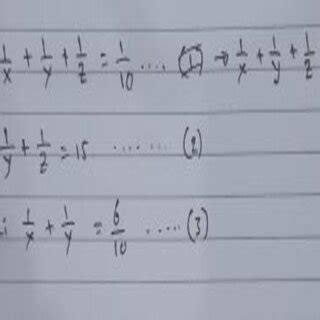 1/x + 1/y + 1/z = 1/10 .... (1) → 1/x + 1/y + 1/z
1/y + 1/z = 15 ........ (2)
: 1/x + 1/y = 6/10 ..... (3)